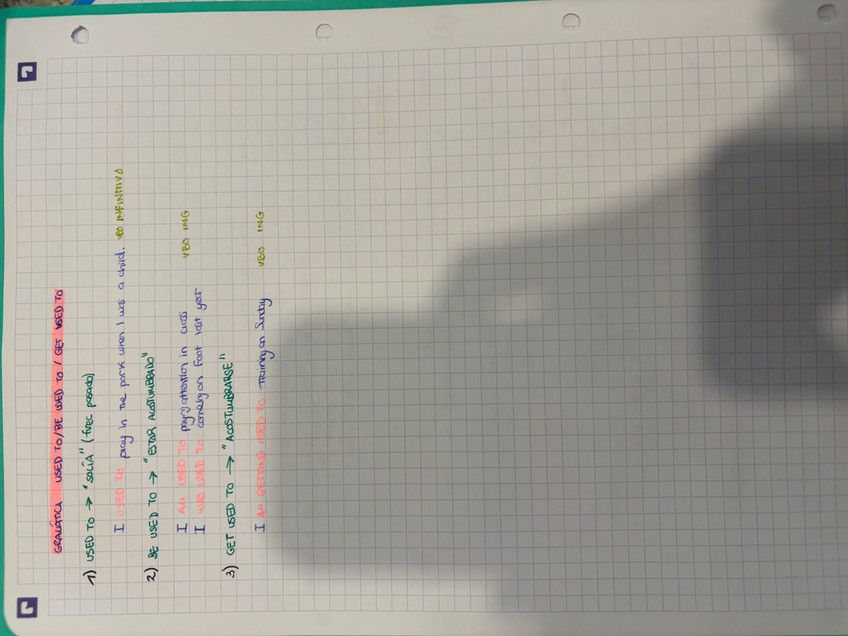 GRAMÁTICA USED TO/BE USED TO / GET USED TO
1) USED TO → "SOLÍA" (frec pasado)
I USED TO play in the park when I was a child. VBO INFINITIVO
2) BE USED TO → "ESTAR ACOSTUMBRADO"
I AM USED TO paying attention in class VBO ING
I WAS USED TO coming on foot last year
3) GET USED TO → "ACOSTUMBRARSE"
I AM GETTING USED TO training on Sunday VBO ING